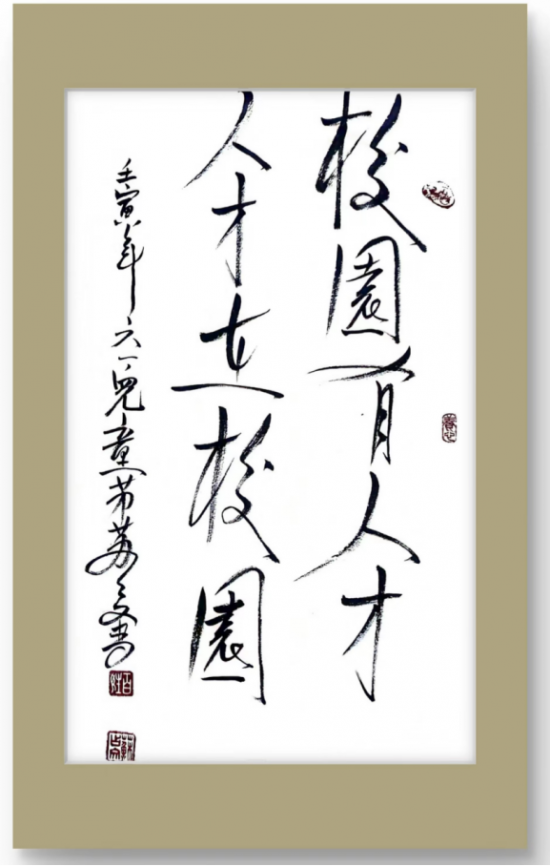 校園有人才
人才在校園
壬寅年六一兒童节書